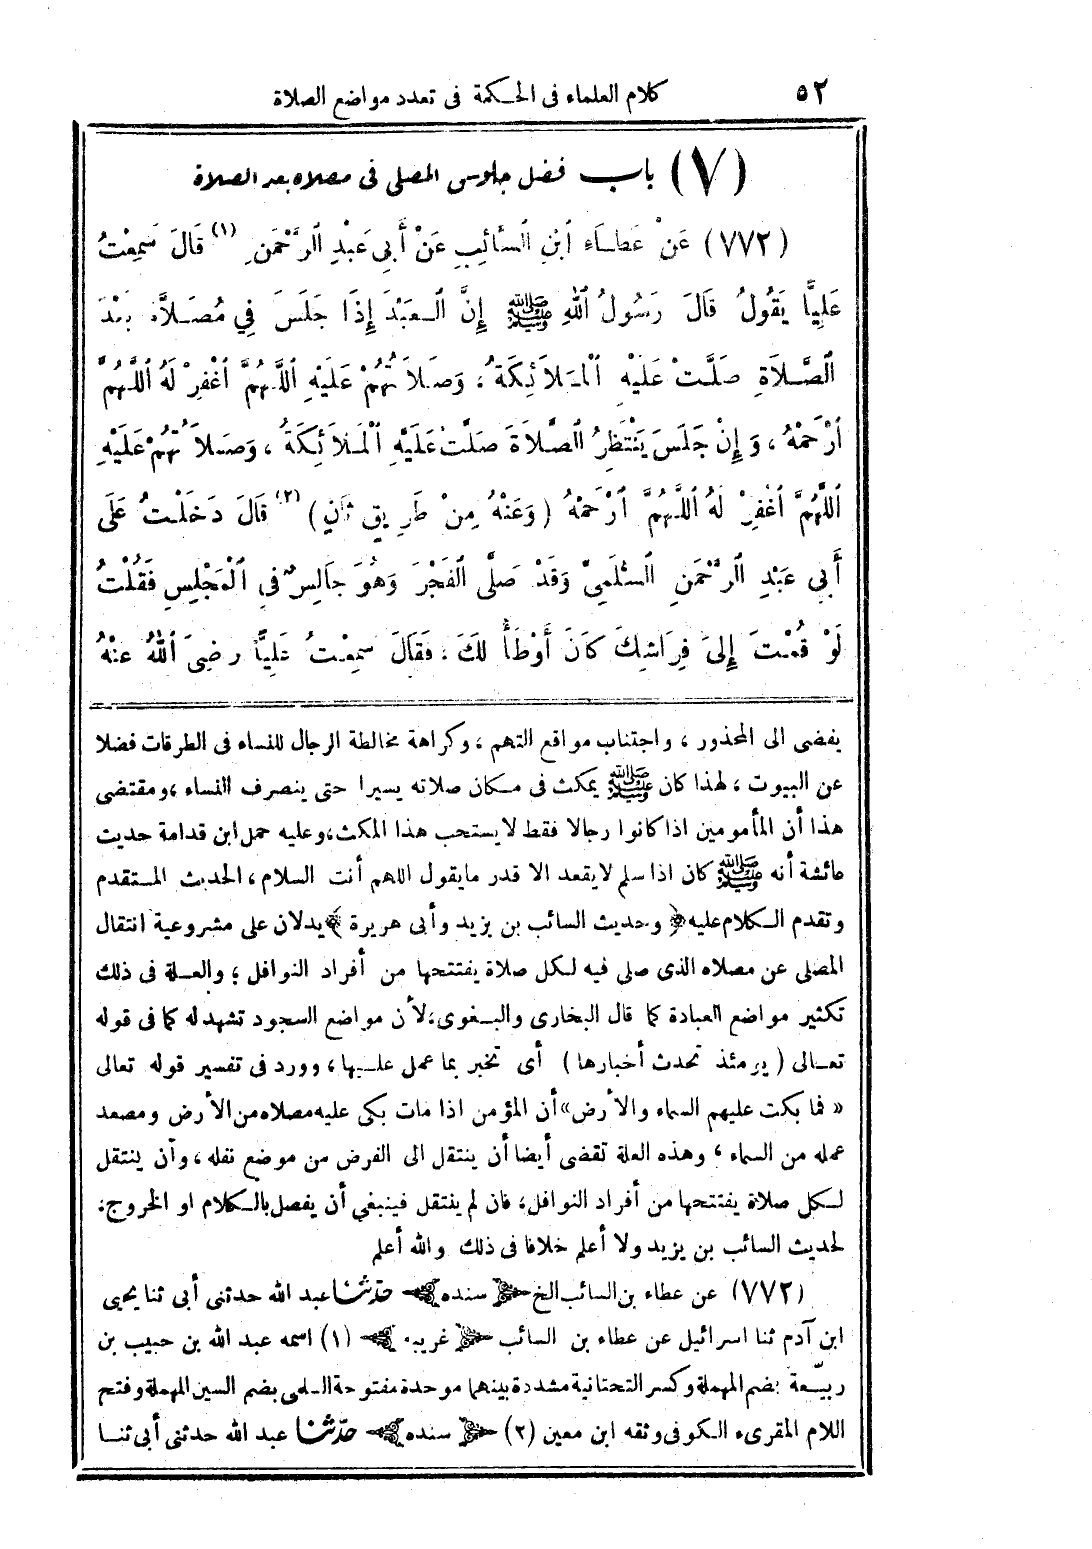 ٥٢ كلام العلماء فى الحكمة فى تعدد مواضع الصلاة
(٧) باب فضل جلوس المصلى فى مصلاه بعد الصلاة
(٧٧٢) عَنْ عَطَاءِ ابْنِ السَّائِبِ عَنْ أَبِي عَبْدِ الرَّحْمَنِ (١) قَالَ سَمِعْتُ
عَلِيًّا يَقُولُ قَالَ رَسُولُ اللهِ ﷺ إِنَّ الْعَبْدَ إِذَا جَلَسَ فِي مُصَلاَّهُ بَعْدَ
الصَّلَاةِ صَلَّتْ عَلَيْهِ الْمَلَائِكَةُ، وَصَلَاتُهُمْ عَلَيْهِ اللَّهُمَّ اغْفِرْ لَهُ اللَّهُمَّ
ارْحَمْهُ، وَإِنْ جَلَسَ يَنْتَظِرُ الصَّلَاةَ صَلَّتْ عَلَيْهِ الْمَلَائِكَةُ، وَصَلَاتُهُمْ عَلَيْهِ
اللَّهُمَّ اغْفِرْ لَهُ اللَّهُمَّ ارْحَمْهُ (وَعَنْهُ مِنْ طَرِيقٍ ثَانٍ) (٢) قَالَ دَخَلْتُ عَلَى
أَبِي عَبْدِ الرَّحْمَنِ السُّلَمِيِّ وَقَدْ صَلَّى الْفَجْرَ وَهُوَ جَالِسٌ فِي الْمَجْلِسِ فَقُلْتُ
لَوْ قُمْتَ إِلَى فِرَاشِكَ كَانَ أَوْطَأَ لَكَ، فَقَالَ سَمِعْتُ عَلِيًّا رَضِيَ اللهُ عَنْهُ
يفضى الى المحذور، واجتناب مواقع التهم، وكراهة مخالطة الرجال للنساء فى الطرقات فضلا
عن البيوت، لهذا كان ﷺ يمكث فى مكان صلاته يسيرا حتى ينصرف النساء، ومقتضى
هذا أن المأمومين اذا كانوا رجالا فقط لا يستحب هذا المكث، وعليه حمل ابن قدامة حديث
عائشة أنه ﷺ كان اذا سلم لا يقعد الا قدر ما يقول اللهم أنت السلام، الحديث المتقدم
وتقدم الكلام عليه ﴿وحديث السائب بن يزيد وأبى هريرة﴾ يدلان على مشروعية انتقال
المصلى عن مصلاه الذى صلى فيه لكل صلاة يفتتحها من أفراد النوافل؛ والعلة فى ذلك
تكثير مواضع العبادة كما قال البخارى والبغوى؛ لأن مواضع السجود تشهد له كما فى قوله
تعالى (يومئذ تحدث أخبارها) أى تخبر بما عمل عليها، وورد فى تفسير قوله تعالى
« فما بكت عليهم السماء والأرض» أن المؤمن اذا مات بكى عليه مصلاه من الأرض ومصعد
عمله من السماء، وهذه العلة تقضى أيضا أن ينتقل الى الفرض من موضع نفله، وأن ينتقل
لكل صلاة يفتتحها من أفراد النوافل، فان لم ينتقل فينبغي أن يفصل بالكلام او الخروج،
لحديث السائب بن يزيد ولا أعلم خلافا فى ذلك والله أعلم
(٧٧٢) عن عطاء بن السائب الخ ﴿سنده﴾ حدّثنا عبد الله حدثنى أبى ثنا يحيى
ابن آدم ثنا اسرائيل عن عطاء بن السائب ﴿غريبه﴾ (١) اسمه عبد الله بن حبيب بن
ربيّعة بضم المهملة وكسر التحتانية مشددة بينهما موحدة مفتوحة السلمى بضم السين المهملة وفتح
اللام المقرىء الكوفى وثقه ابن معين (٢) ﴿سنده﴾ حدّثنا عبد الله حدثنى أبى ثنا